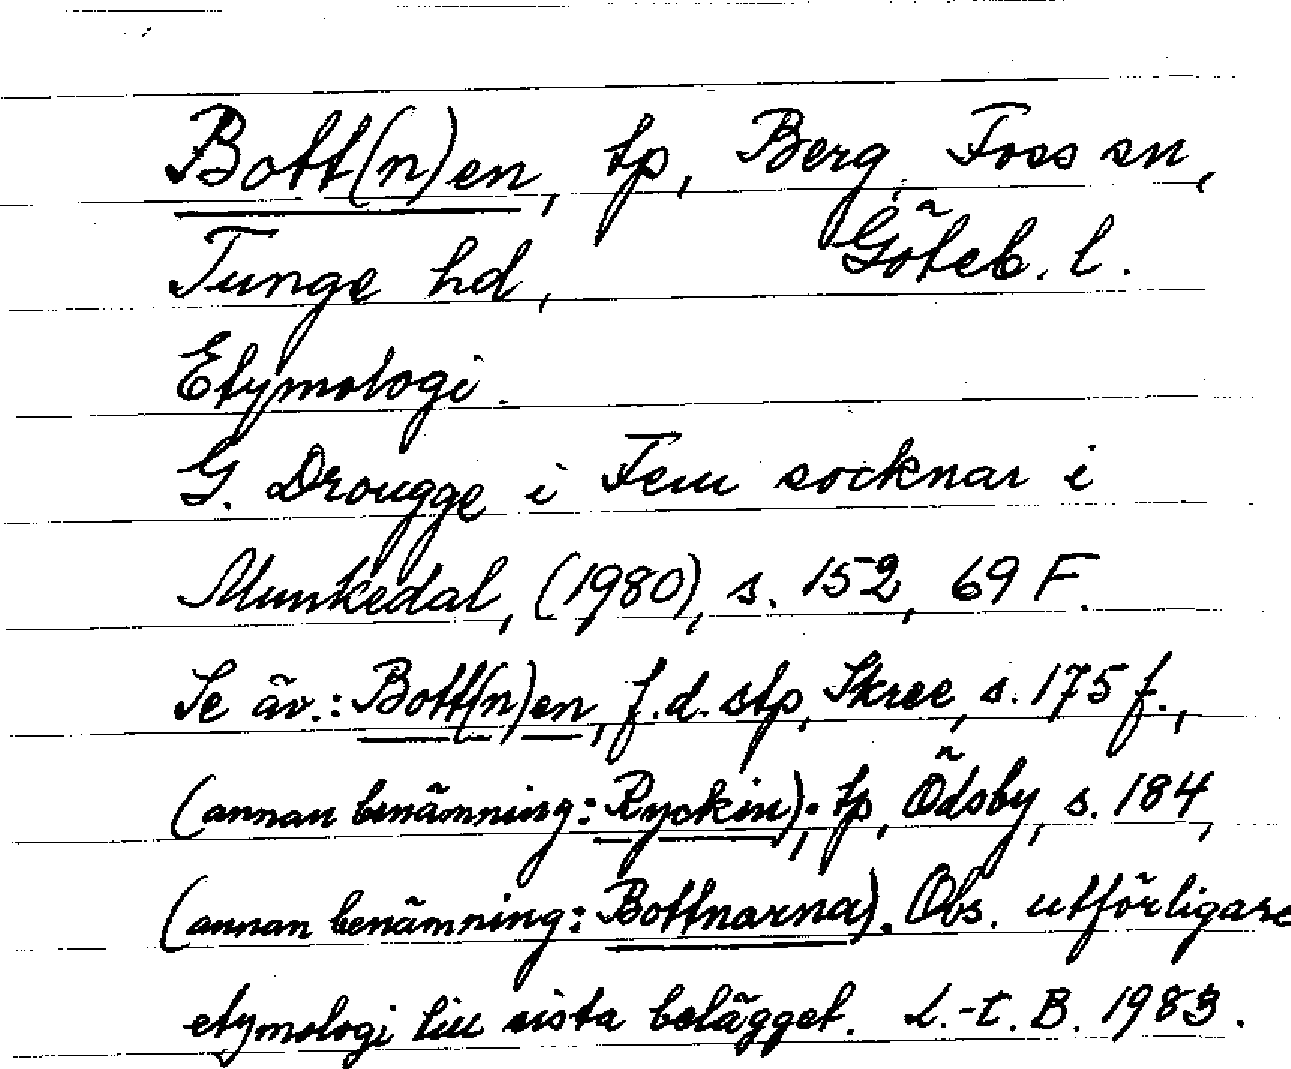 Bott(n)en, tp, Berg, Foss sn,
Tunge hd, Göteb. l.
Etymologi.
G. Drougge i Fem socknar i
Munkedal, (1980), s. 152, 69 F.
Se äv.: Bott(n)en, f.d. stp, Skree, s. 175 f.,
(annan benämning: Ryckin); tp, Ödsby, s. 184,
(annan benämning: Bottnarna). Obs. utförligare
etymologi till sista belägget. L.-t. B. 1983.